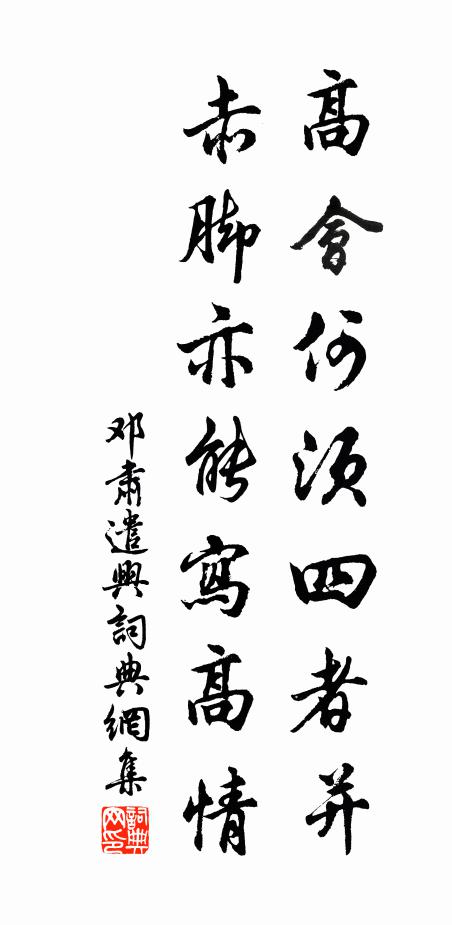 高會何須四者并
赤脚亦能寫高情
邓肅遣興詞典網集
詞典网印